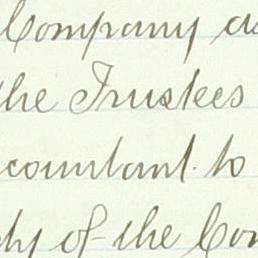 Company as
the Trustees
countant to
of the Com